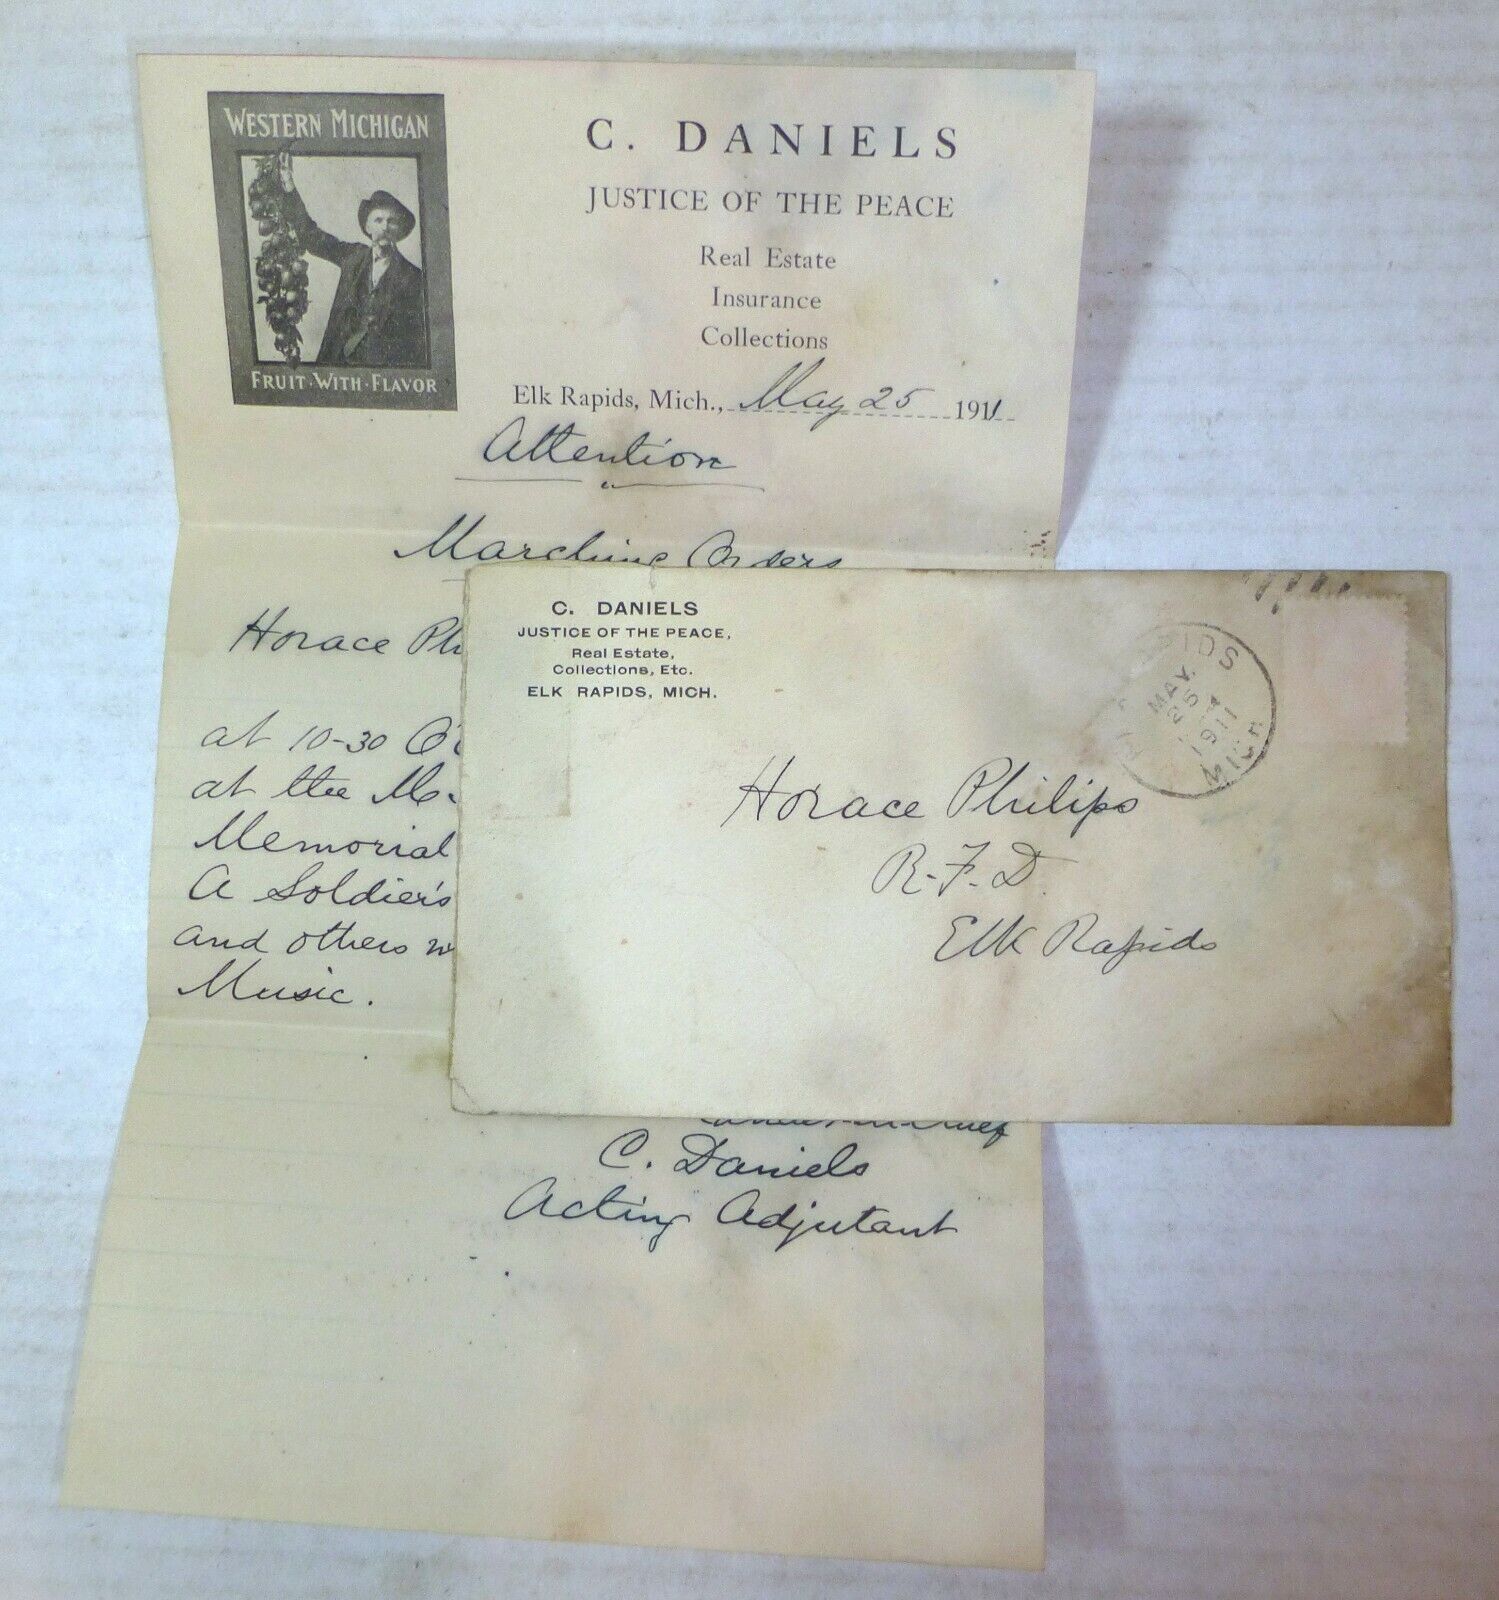 WESTERN MICHIGAN
FRUIT·WITH·FLAVOR
C. DANIELS
JUSTICE OF THE PEACE
Real Estate
Insurance
Collections
Elk Rapids, Mich., May 25 1911
Attention
Marching Orders
Horace
at 10-30
at the
Memorial
A Soldier's
and others
Music.
C. Daniels
Acting Adjutant
C. DANIELS
JUSTICE OF THE PEACE,
Real Estate,
Collections, Etc.
ELK RAPIDS, MICH.
MAY
25
1911
MICH.
Horace Philips
R.F.D.
Elk Rapids